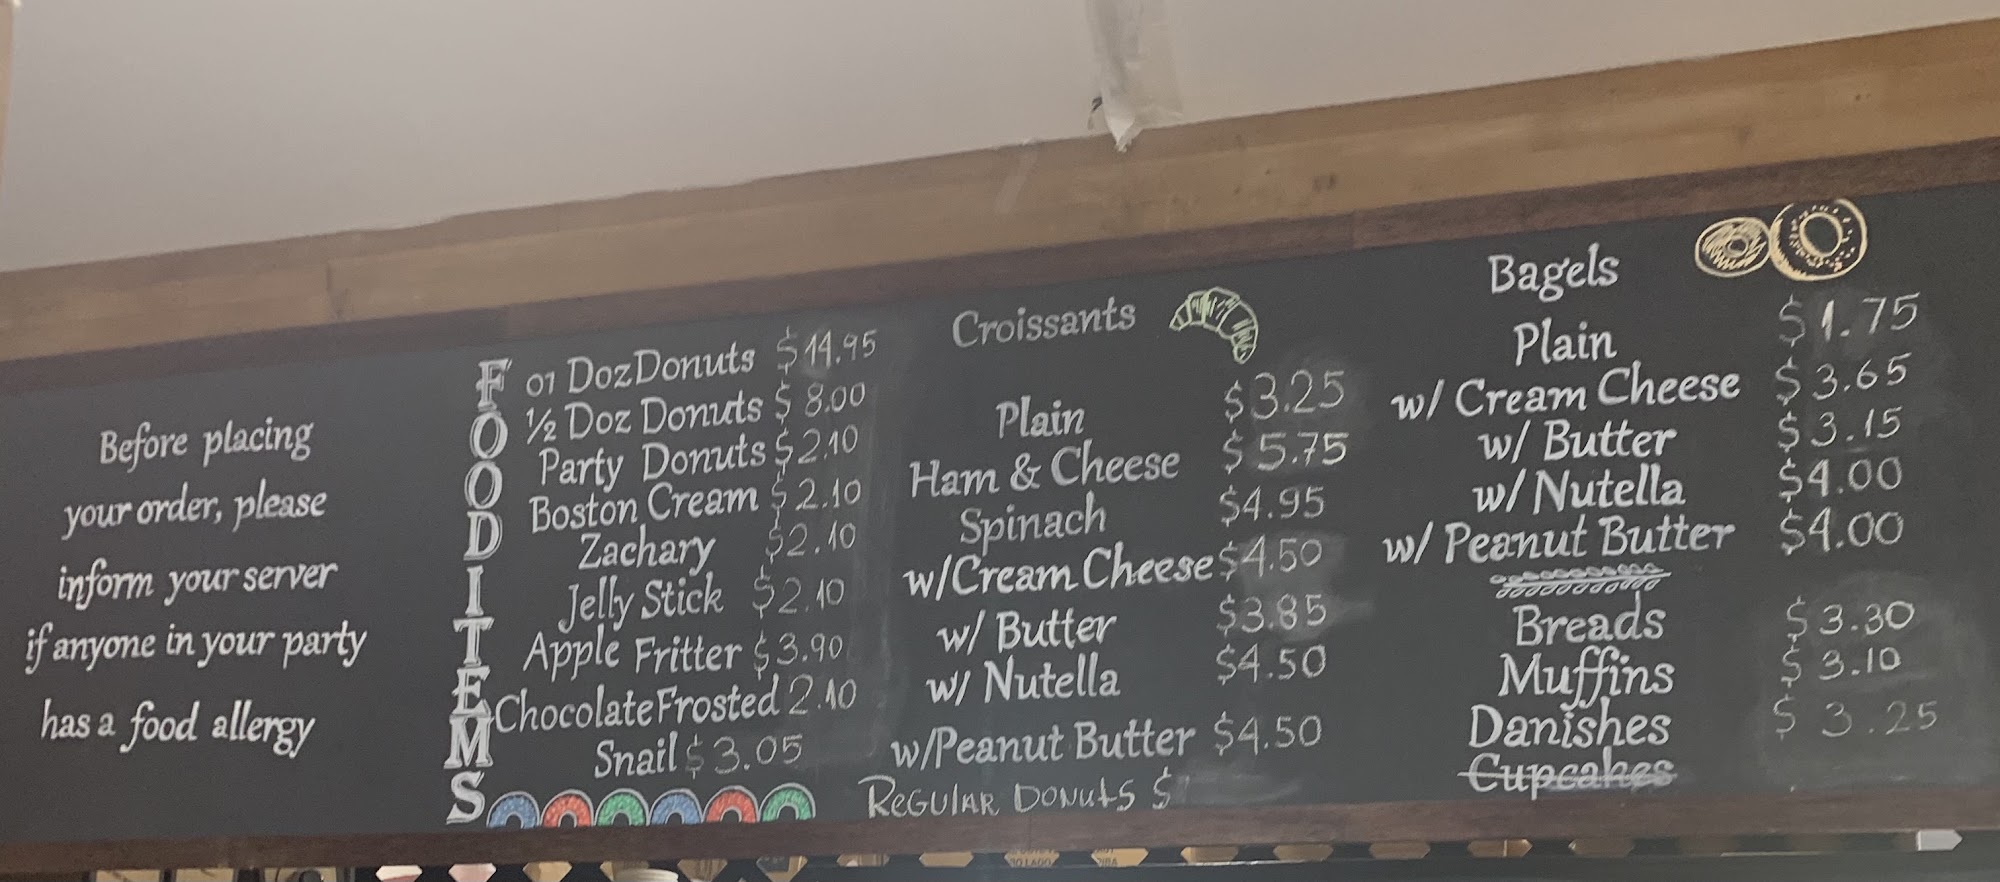 Before placing
your order, please
inform your server
if anyone in your party
has a food allergy
FOOD ITEMS
01 Doz Donuts $14.95
½ Doz Donuts $8.00
Party Donuts $2.10
Boston Cream $2.10
Zachary $2.10
Jelly Stick $2.10
Apple Fritter $3.90
Chocolate Frosted 2.10
Snail $3.05
Croissants
Plain $3.25
Ham & Cheese $5.75
Spinach $4.95
w/Cream Cheese $4.50
w/ Butter $3.85
w/ Nutella $4.50
w/Peanut Butter $4.50
REGULAR DONUTS $
Bagels
Plain $1.75
w/ Cream Cheese $3.65
w/ Butter $3.15
w/ Nutella $4.00
w/ Peanut Butter $4.00
Breads $3.30
Muffins $3.10
Danishes $3.25
Cupcakes